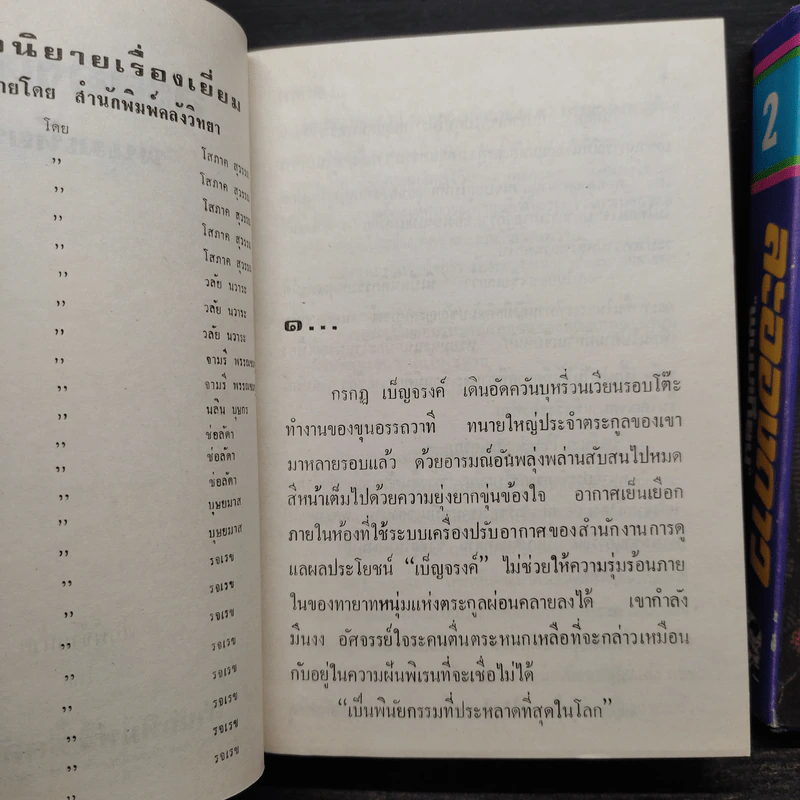 นิยายเรื่องเยี่ยม
ายโดย สำนักพิมพ์คลังวิทยา
โดย
,, โสภาค สุวรรณ
,, โสภาค สุวรรณ
,, โสภาค สุวรรณ
,, โสภาค สุวรรณ
,, โสภาค สุวรรณ
,, วลัย นวาระ
,, วลัย นวาระ
,, วลัย นวาระ
,, จามรี พรรณชมพู
,, จามรี พรรณชมพู
,, นลิน บุษกร
,, ช่อลัดา
,, ช่อลัดา
,, ช่อลัดา
,, บุษยมาส
,, บุษยมาส
,, รจเรข
,, รจเรข
,, รจเรข
,, รจเรข
,, รจเรข
,, รจเรข
,, รจเรข
,, รจเรข
๑...
กรกฎ เบ็ญจรงค์ เดินอัดควันบุหรี่วนเวียนรอบโต๊ะ
ทำงานของขุนอรรถวาที ทนายใหญ่ประจำตระกูลของเขา
มาหลายรอบแล้ว ด้วยอารมณ์อันพลุ่งพล่านสับสนไปหมด
สีหน้าเต็มไปด้วยความยุ่งยากขุ่นข้องใจ อากาศเย็นเยือก
ภายในห้องที่ใช้ระบบเครื่องปรับอากาศของสำนักงานการดู
แลผลประโยชน์ “เบ็ญจรงค์” ไม่ช่วยให้ความรุ่มร้อนภาย
ในของทายาทหนุ่มแห่งตระกูลผ่อนคลายลงได้ เขากำลัง
มึนงง อัศจรรย์ใจระคนตื่นตระหนกเหลือที่จะกล่าวเหมือน
กับอยู่ในความฝันพิเรนที่จะเชื่อไม่ได้
“เป็นพินัยกรรมที่ประหลาดที่สุดในโลก”
2
ละอองดาว